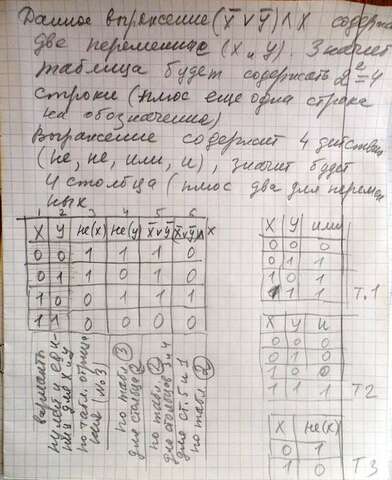 Данное выражение (X̅ ∨ Y̅) ∧ X содерж
две переменные (X и Y). Значит
таблица будет содержать 2²=4
строки (плюс еще одна строка
на обозначение)
Выражение содержит 4 действия
(не, не, или, и), значит будет
4 столбца (плюс два для перемен
ных
1 2 3 4 5 6
X Y не(x) не(y) X̅∨Y̅ (X̅∨Y̅)∧X
0 0 1 1 1 0
0 1 1 0 1 0
1 0 0 1 1 1
1 1 0 0 0 0
варианты
нулей и еди
ниц для X и Y
по табл.
№3
по табл. ③
для столбца 2
по табл. ①
для столбцов 3 и 4
для ст. 5 и 1
по табл. ②
X Y или
0 0 0
0 1 1
1 0 1
1 1 1
Т.1
X Y и
0 0 0
0 1 0
1 0 0
1 1 1
Т2
X не(x)
0 1
1 0
Т3